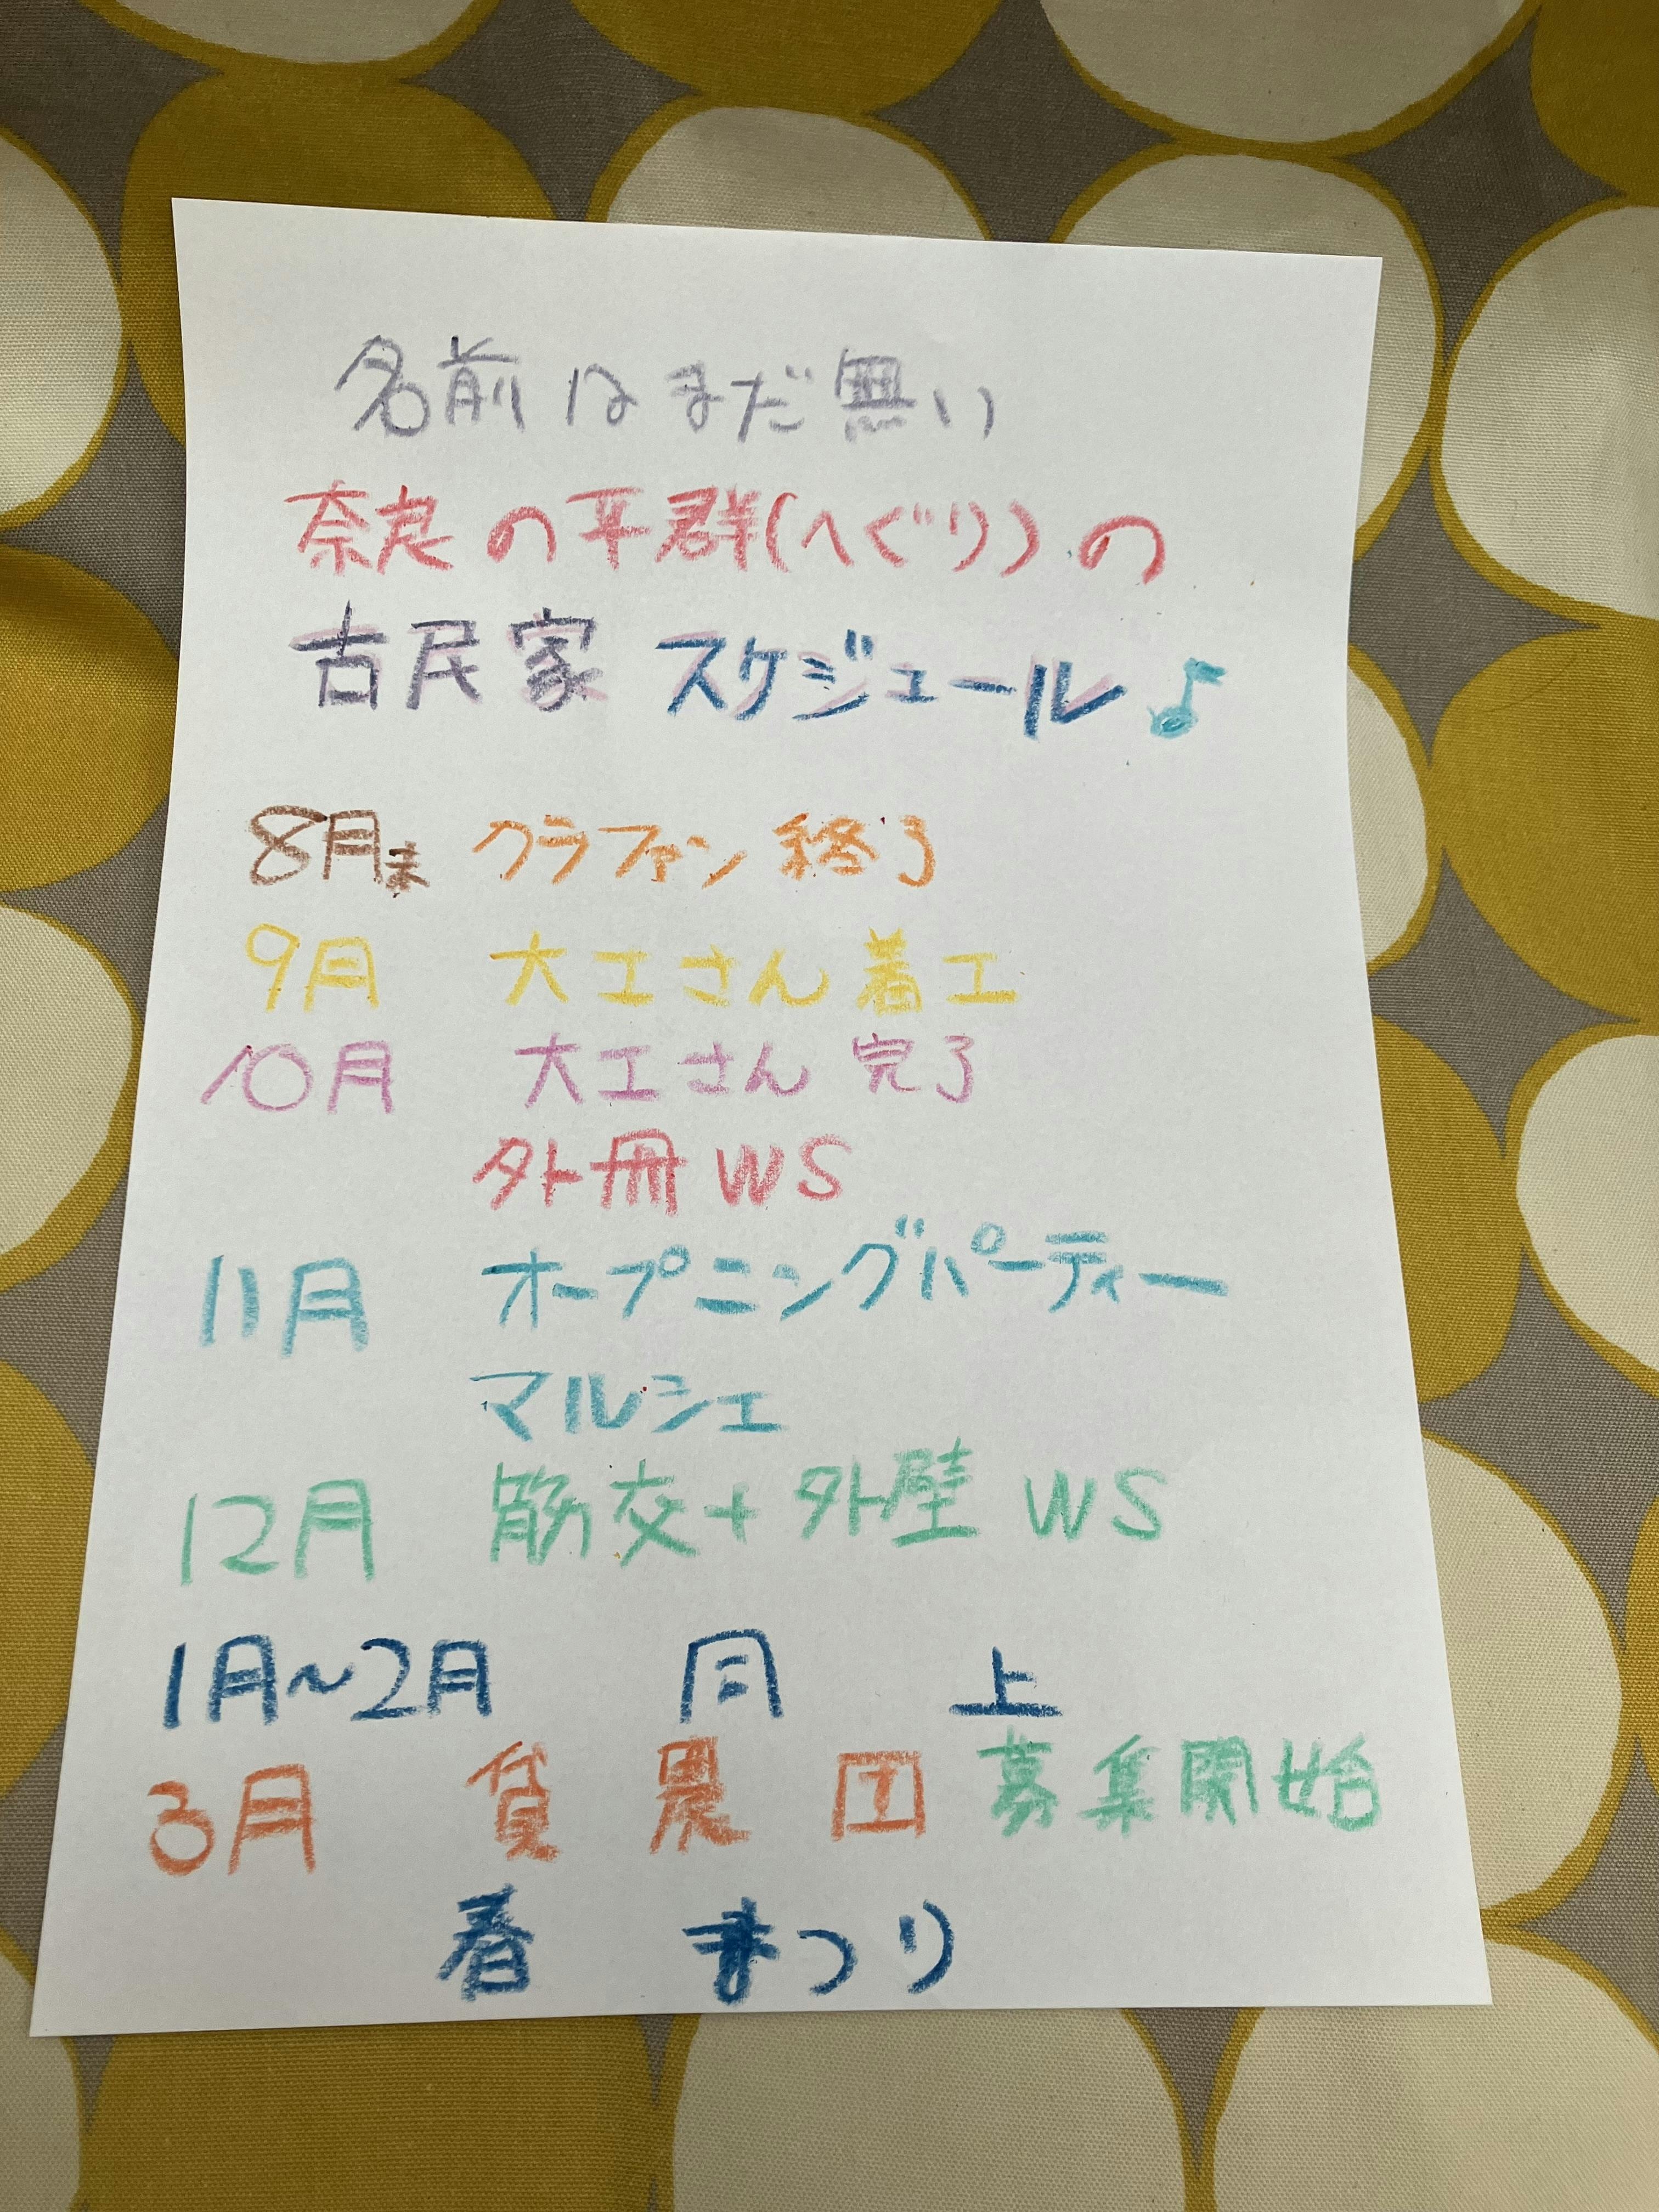 名前はまだ無い
奈良の平群(へぐり)の
古民家 スケジュール♪
8月末 クラファン 終了
9月 大工さん 着工
10月 大工さん 完了
外冊 WS
11月 オープニングパーティー
マルシェ
12月 筋交+外壁 WS
1月~2月 同上
3月 貸農団 募集開始
春まつり